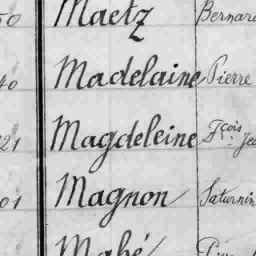 50 Maetz Bernard
40 Madelaine Pierre
21 Magdeleine Fçois Jea
01 Magnon Saturnin
Mahé